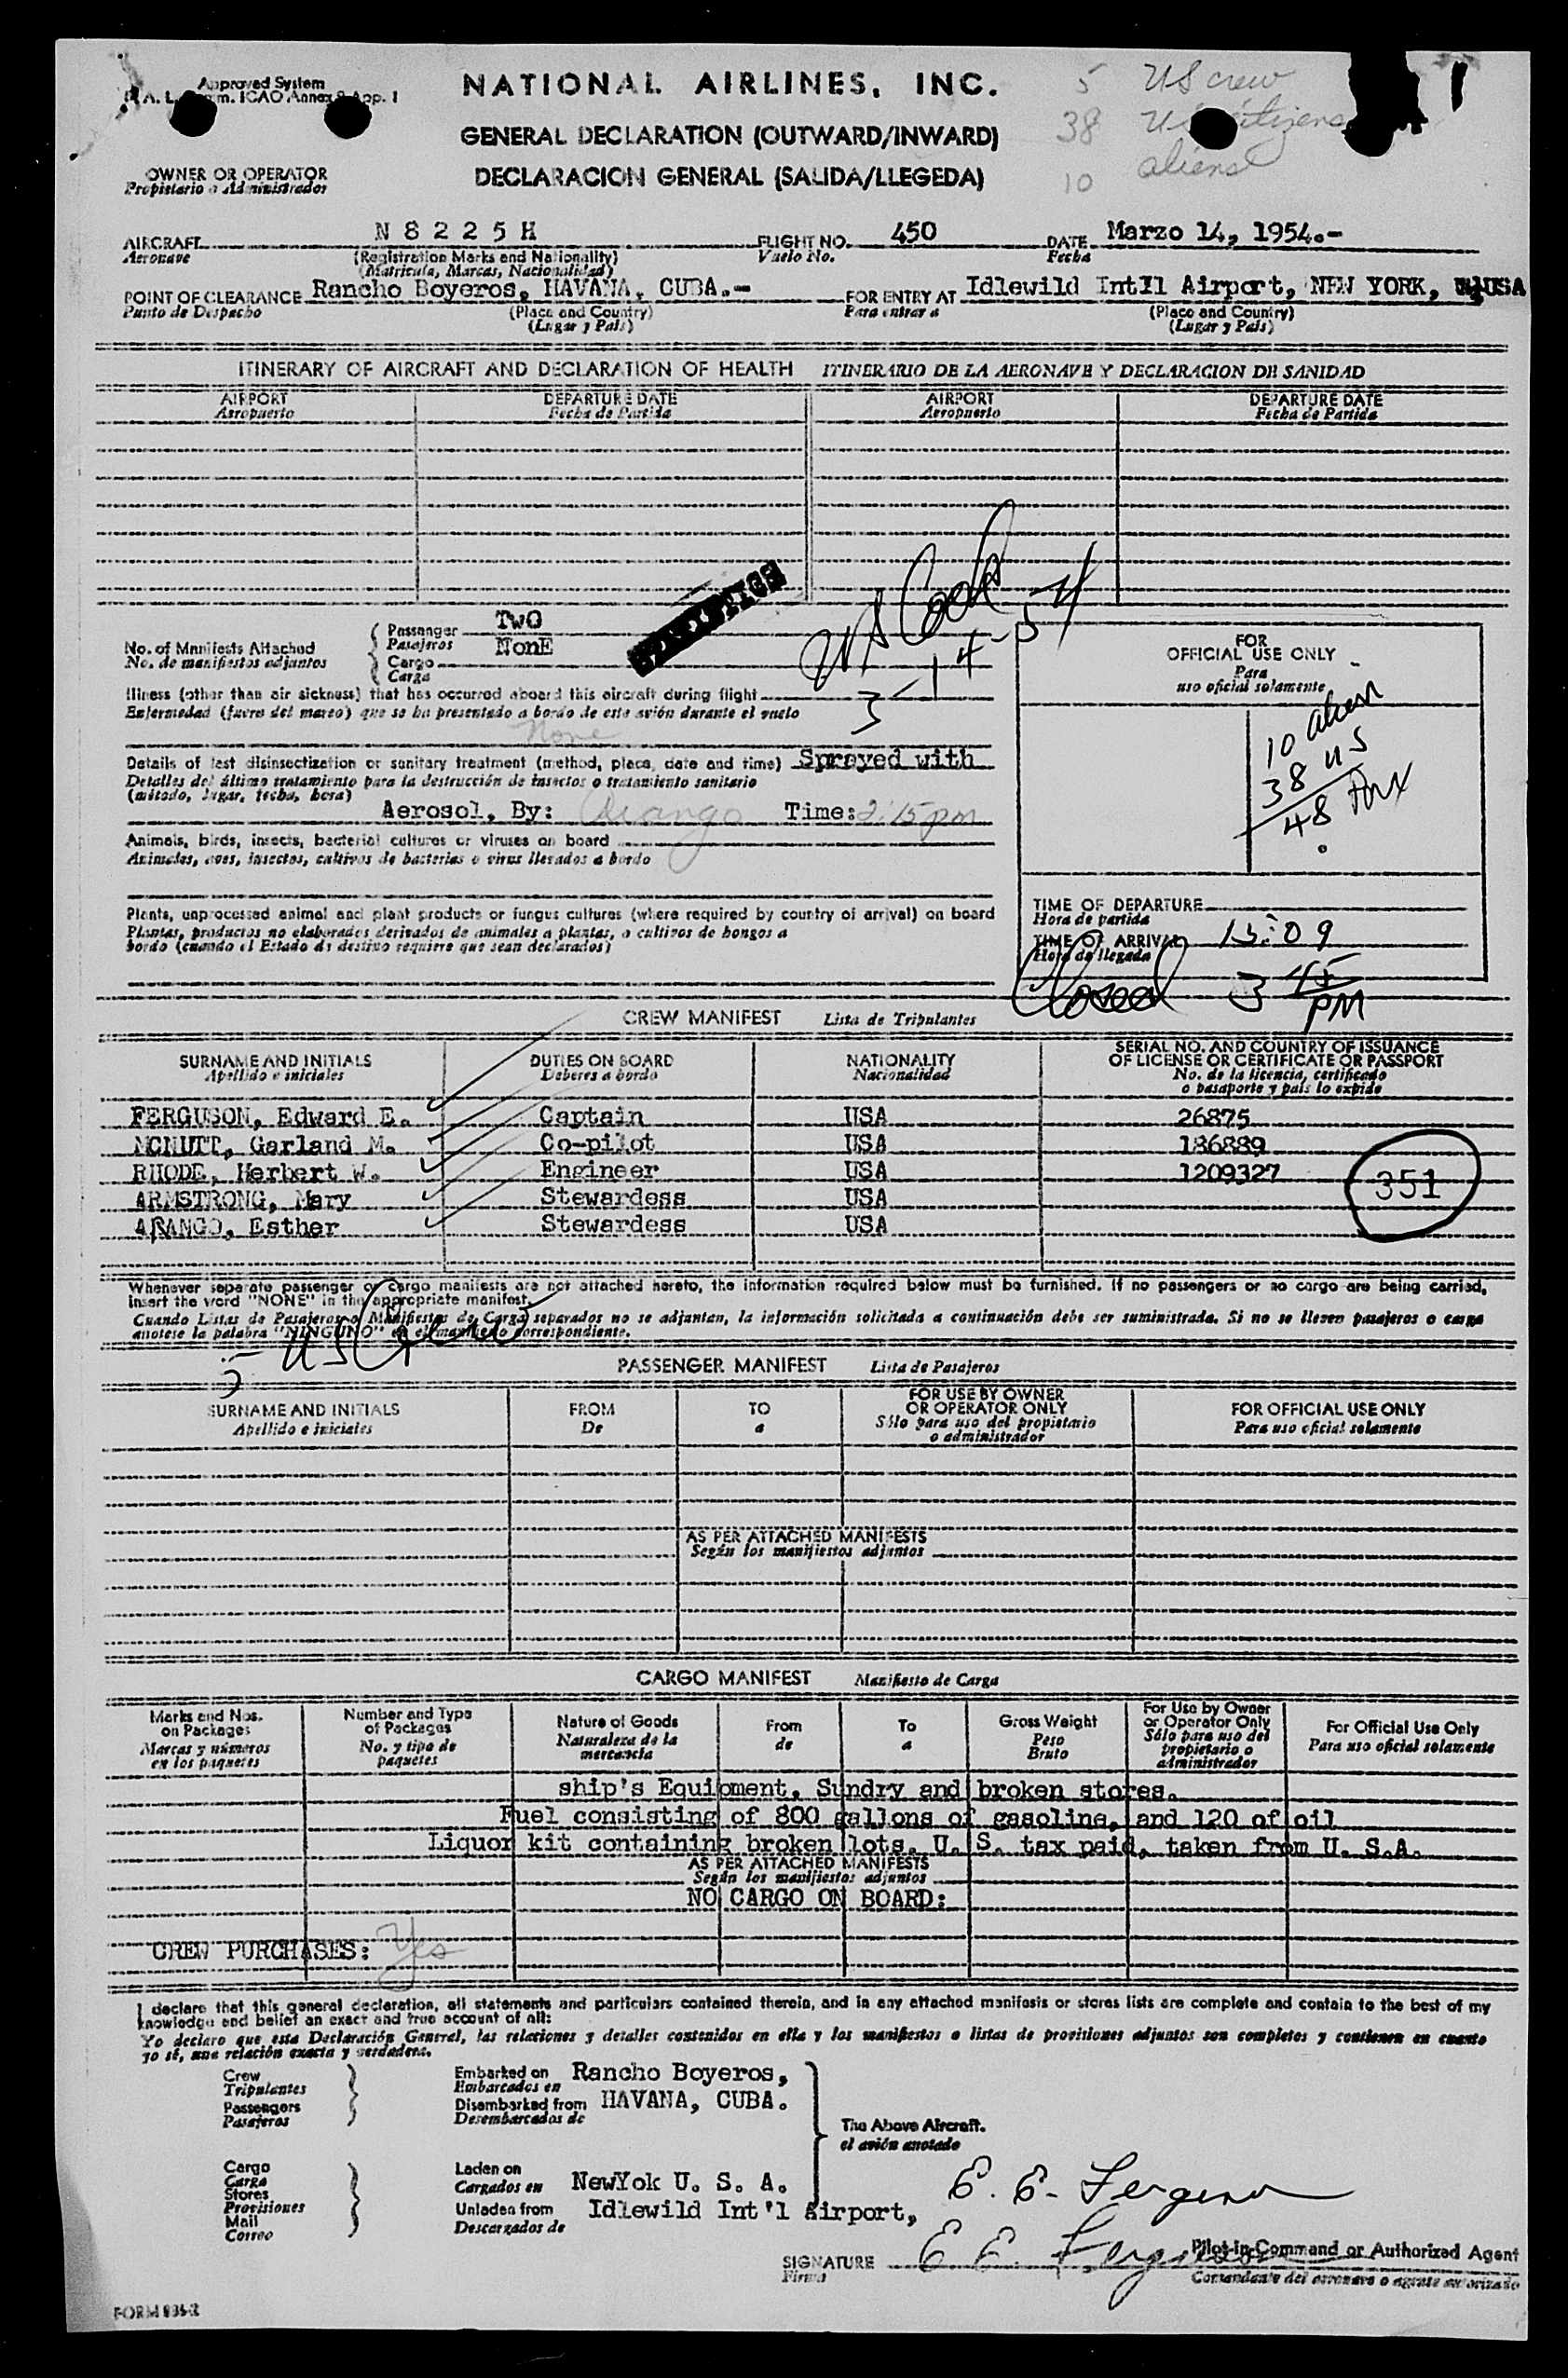 Approved System
ICAO Annex 9 App. 1
NATIONAL AIRLINES, INC.
5 US crew
38 US citizens
10 aliens
GENERAL DECLARATION (OUTWARD/INWARD)
DECLARACION GENERAL (SALIDA/LLEGEDA)
OWNER OR OPERATOR
Propietario o Administrador
AIRCRAFT N 8 2 2 5 H FLIGHT NO. 450 DATE Marzo 14, 1954.-
Aeronave (Registration Marks and Nationality) Vuelo No. Fecha
(Matricula, Marcas, Nacionalidad)
POINT OF CLEARANCE Rancho Boyeros, HAVANA, CUBA.- FOR ENTRY AT Idlewild Int'l Airport, NEW YORK, USA
Punto de Despacho (Place and Country) Para entrar a (Place and Country)
(Lugar y Pais) (Lugar y Pais)
ITINERARY OF AIRCRAFT AND DECLARATION OF HEALTH ITINERARIO DE LA AERONAVE Y DECLARACION DE SANIDAD
AIRPORT DEPARTURE DATE AIRPORT DEPARTURE DATE
Aeropuerto Fecha de Partida Aeropuerto Fecha de Partida
No. of Manifests Attached Passenger TwO
No. de manifiestos adjuntos Pasajeros NonE
Cargo
Carga
3-14-54
Illness (other than air sickness) that has occurred aboard this aircraft during flight
Enfermedad (fuera del mareo) que se ha presentado a bordo de este avión durante el vuelo
None
Details of last disinsectization or sanitary treatment (method, place, date and time) Sprayed with
Detalles del último tratamiento para la destrucción de insectos o tratamiento sanitario
(método, lugar, fecha, hora) Aerosol, By: Arango Time: 2:15 pm
Animals, birds, insects, bacterial cultures or viruses on board
Animales, aves, insectos, cultivos de bacterias o virus llevados a bordo
Plants, unprocessed animal and plant products or fungus cultures (where required by country of arrival) on board
Plantas, productos no elaborados derivados de animales a plantas, o cultivos de hongos a
bordo (cuando el Estado de destino requiere que sean declarados)
FOR
OFFICIAL USE ONLY
Para
uso oficial solamente
10 alien
38 US
48 Pax
TIME OF DEPARTURE
Hora de partida
TIME OF ARRIVAL 15:09
Hora de llegada
Closed 3 45 PM
CREW MANIFEST Lista de Tripulantes
SURNAME AND INITIALS DUTIES ON BOARD NATIONALITY SERIAL NO. AND COUNTRY OF ISSUANCE
OF LICENSE OR CERTIFICATE OR PASSPORT
Apellido e iniciales Deberes a bordo Nacionalidad No. de la licencia, certificado
o pasaporte y pais lo expide
FERGUSON, Edward E. Captain USA 26875
MCNUTT, Garland M. Co-pilot USA 186889
RHODE, Herbert W. Engineer USA 1209327
ARMSTRONG, Mary Stewardess USA
351
ARANGO, Esther Stewardess USA
Whenever separate passenger or cargo manifests are not attached hereto, the information required below must be furnished. If no passengers or no cargo are being carried,
insert the word "NONE" in the appropriate manifest.
Cuando Listas de Pasajeros o Manifiestos de Carga separados no se adjuntan, la información solicitada a continuación debe ser suministrada. Si no se lleven pasajeros o carga
anotese la palabra "NINGUNO" en el manifiesto correspondiente.
5 US Crew
PASSENGER MANIFEST Lista de Pasajeros
SURNAME AND INITIALS FROM TO FOR USE BY OWNER
OR OPERATOR ONLY FOR OFFICIAL USE ONLY
Apellido e iniciales De a Sólo para uso del propietario
o administrador Para uso oficial solamente
AS PER ATTACHED MANIFESTS
Según los manifiestos adjuntos
CARGO MANIFEST Manifiesto de Carga
Marks and Nos.
on Packages
Marcas y números
en los paquetes
Number and Type
of Packages
No. y tipo de
paquetes
Nature of Goods
Naturaleza de la
mercancia
From
de
To
a
Gross Weight
Peso
Bruto
For Use by Owner
or Operator Only
Sólo para uso del
propietario o
administrador
For Official Use Only
Para uso oficial solamente
ship's Equipment, Sundry and broken stores.
Fuel consisting of 800 gallons of gasoline, and 120 of oil
Liquor kit containing broken lots. U. S. tax paid, taken from U. S.A.
AS PER ATTACHED MANIFESTS
Según los manifiestos adjuntos
NO CARGO ON BOARD:
CREW PURCHASES: Yes
I declare that this general declaration, all statements and particulars contained therein, and in any attached manifests or stores lists are complete and contain to the best of my
knowledge and belief an exact and true account of all:
Yo declaro que esta Declaración General, las relaciones y detalles contenidos en ella y los manifiestos o listas de provisiones adjuntos son completos y contienen en cuanto
yo sé, una relación exacta y verdadera.
Crew
Tripulantes
Passengers
Pasajeros
Embarked on Rancho Boyeros,
Embarcados en
Disembarked from HAVANA, CUBA.
Desembarcados de
The Above Aircraft.
el avión anotado
Cargo
Carga
Stores
Provisiones
Mail
Correo
Laden on
Cargados en NewYok U. S. A.
Unladen from Idlewild Int'l Airport,
Descargados de
E. E. Ferguson
SIGNATURE E E. Ferguson
Firma
Pilot-in-Command or Authorized Agent
Comandante del aeronave o agente autorizado
FORM 835-2